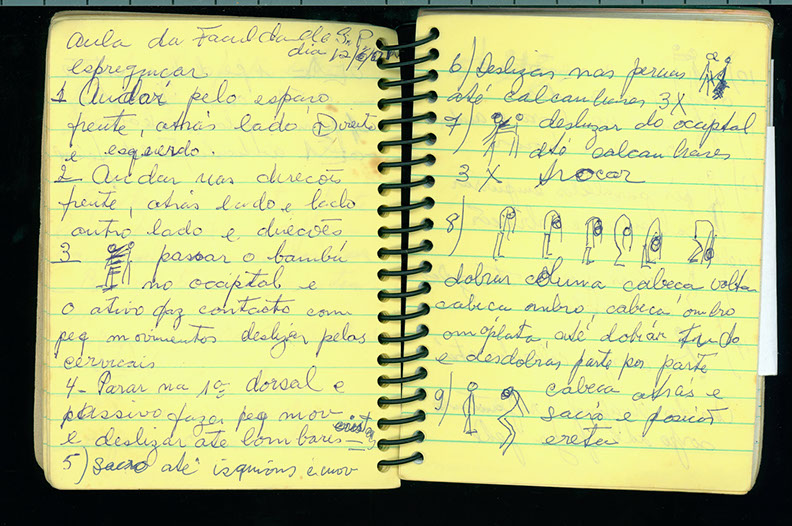 Aula da Faculdade S.P.
dia 12/6/
espreguiçar
1 Andar pelo espaço
frente, atrás lado, Direito
e esquerdo.
2 Andar nas direcões
frente, atrás lado e lado
outro lado e direcões
3 passar o bambú
no occiptal e
o ativo faz contacto com
peq movimentos deslizar pelas
cervicais
4- Parar na 1ª dorsal e
passivo fazer peq mov
e deslizar até lombares
5) sacro até isquions e mov
6) Deslizar nas pernas
até calcanhares 3X
7) deslizar do occiptal
até calcanhares
3 X trocar
8)
dobrar coluna cabeça volta
cabeça ombro, cabeça, ombro
omoplata, até dobrar tudo
e desdobrar parte por parte
9) cabeca atrás e
sacro e posição
ereta